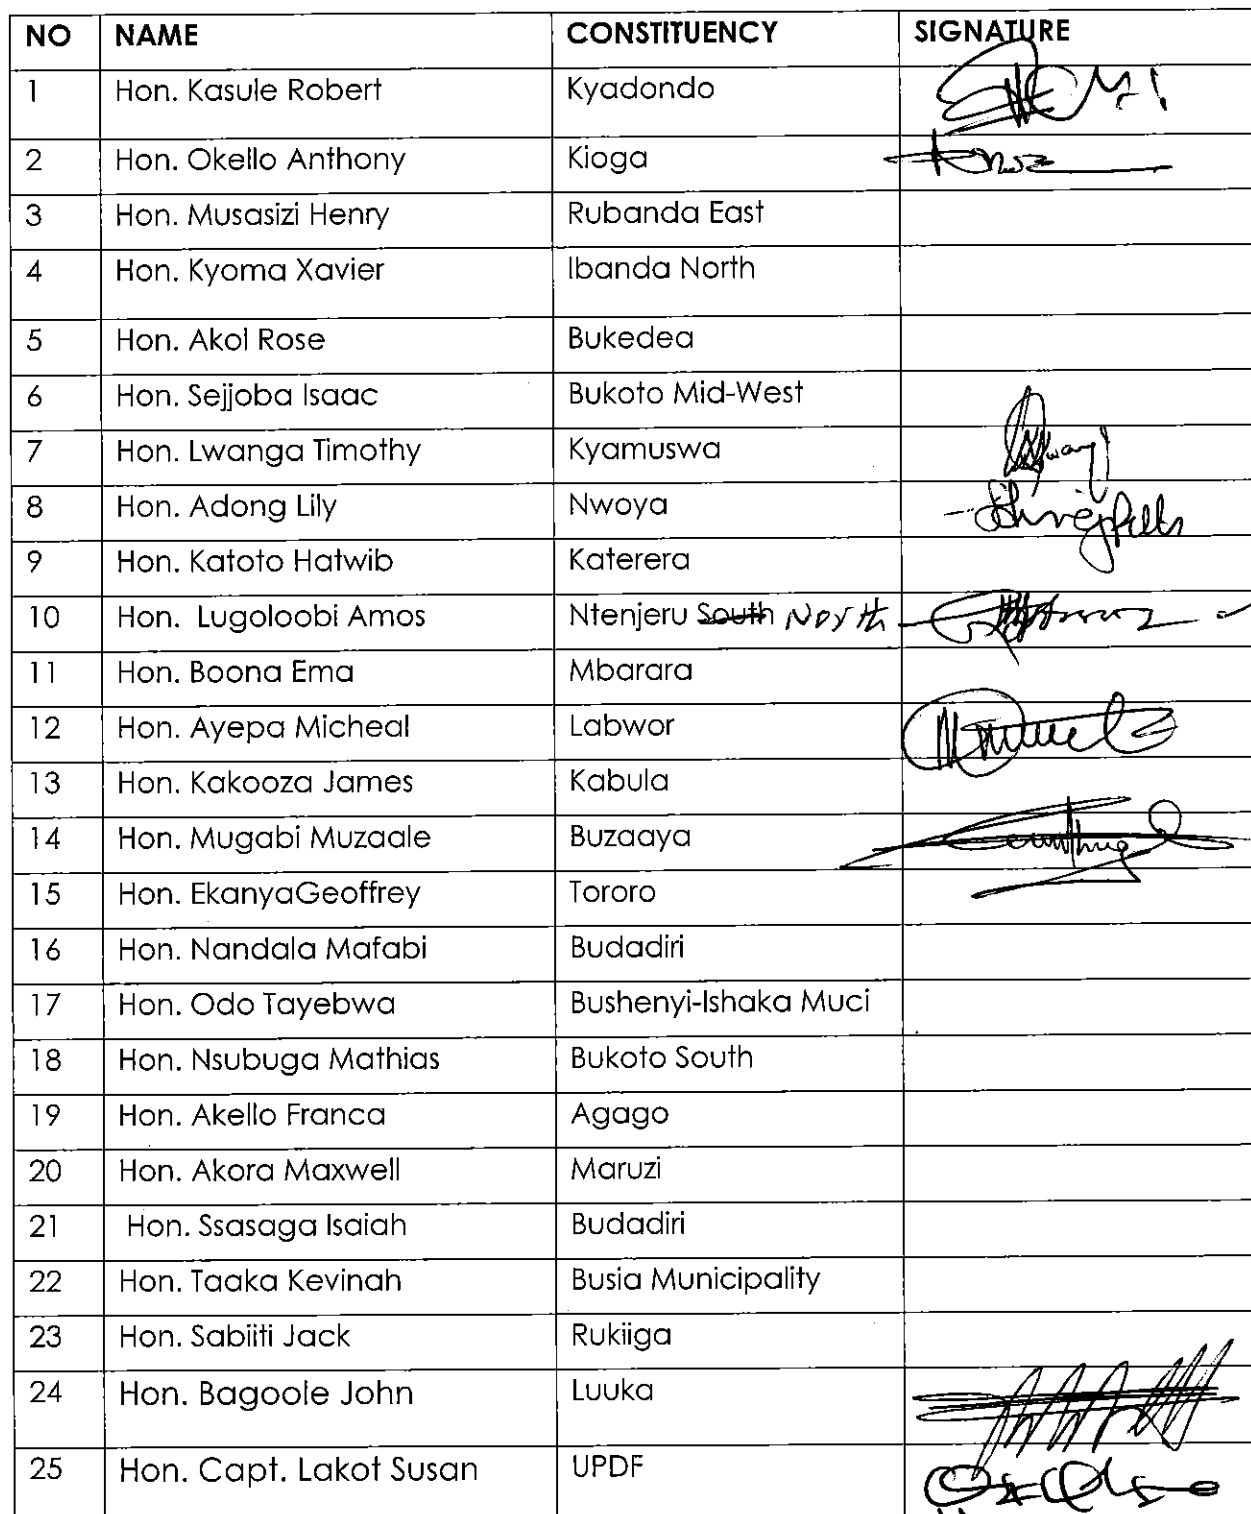 NO NAME CONSTITUENCY SIGNATURE
1 Hon. Kasule Robert Kyadondo
2 Hon. Okello Anthony Kioga
3 Hon. Musasizi Henry Rubanda East
4 Hon. Kyoma Xavier Ibanda North
5 Hon. Akol Rose Bukedea
6 Hon. Sejjoba Isaac Bukoto Mid-West
7 Hon. Lwanga Timothy Kyamuswa
8 Hon. Adong Lily Nwoya
9 Hon. Katoto Hatwib Katerera
10 Hon. Lugoloobi Amos Ntenjeru South North
11 Hon. Boona Ema Mbarara
12 Hon. Ayepa Micheal Labwor
13 Hon. Kakooza James Kabula
14 Hon. Mugabi Muzaale Buzaaya
15 Hon. EkanyaGeoffrey Tororo
16 Hon. Nandala Mafabi Budadiri
17 Hon. Odo Tayebwa Bushenyi-Ishaka Muci
18 Hon. Nsubuga Mathias Bukoto South
19 Hon. Akello Franca Agago
20 Hon. Akora Maxwell Maruzi
21 Hon. Ssasaga Isaiah Budadiri
22 Hon. Taaka Kevinah Busia Municipality
23 Hon. Sabiiti Jack Rukiiga
24 Hon. Bagoole John Luuka
25 Hon. Capt. Lakot Susan UPDF